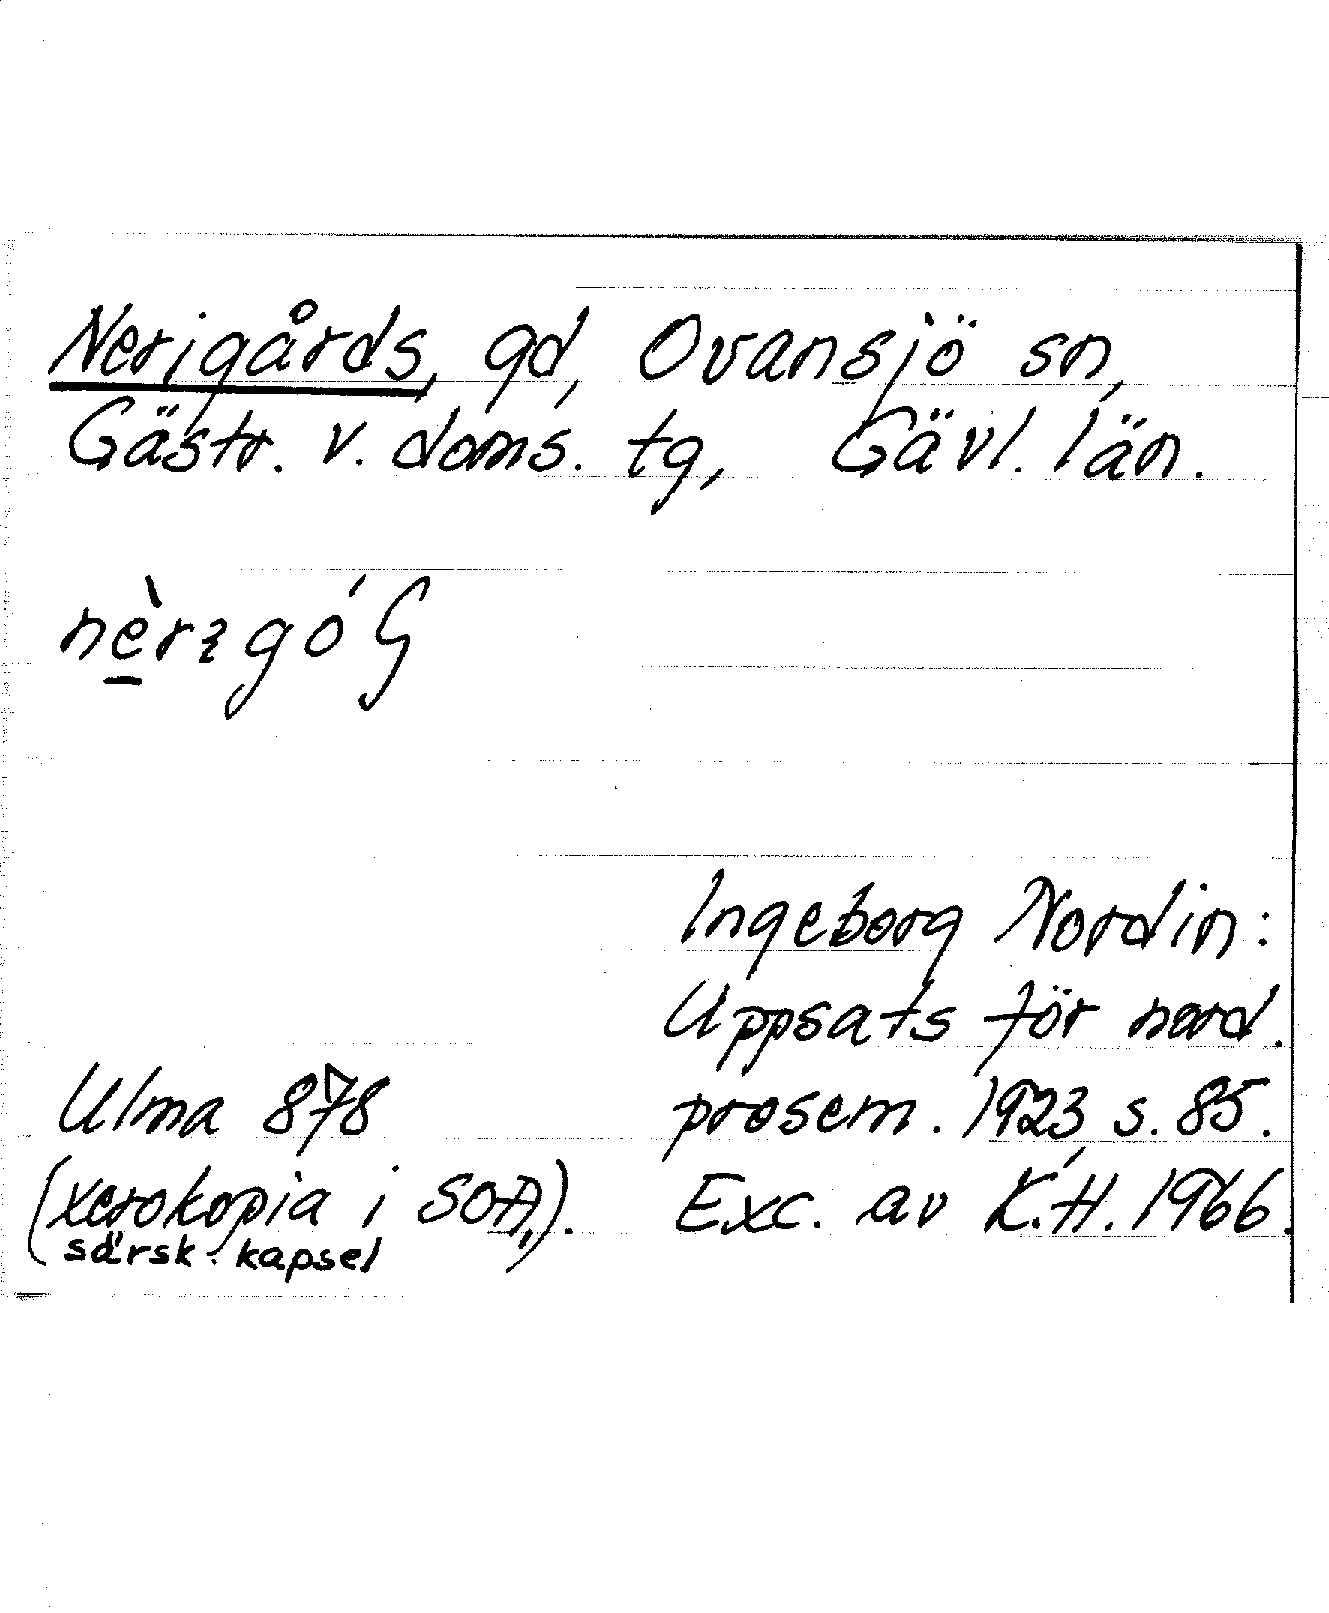 Nerigårds, gd, Ovansjö sn,
Gästr. v. doms. tg, Gävl. län.
Ingeborg Nordin:
Uppsats för nord.
prosem. 1923, s. 85.
Exc. av K.H. 1966.
Ulma 878
(xerokopia i SOA,).
särsk. kapsel